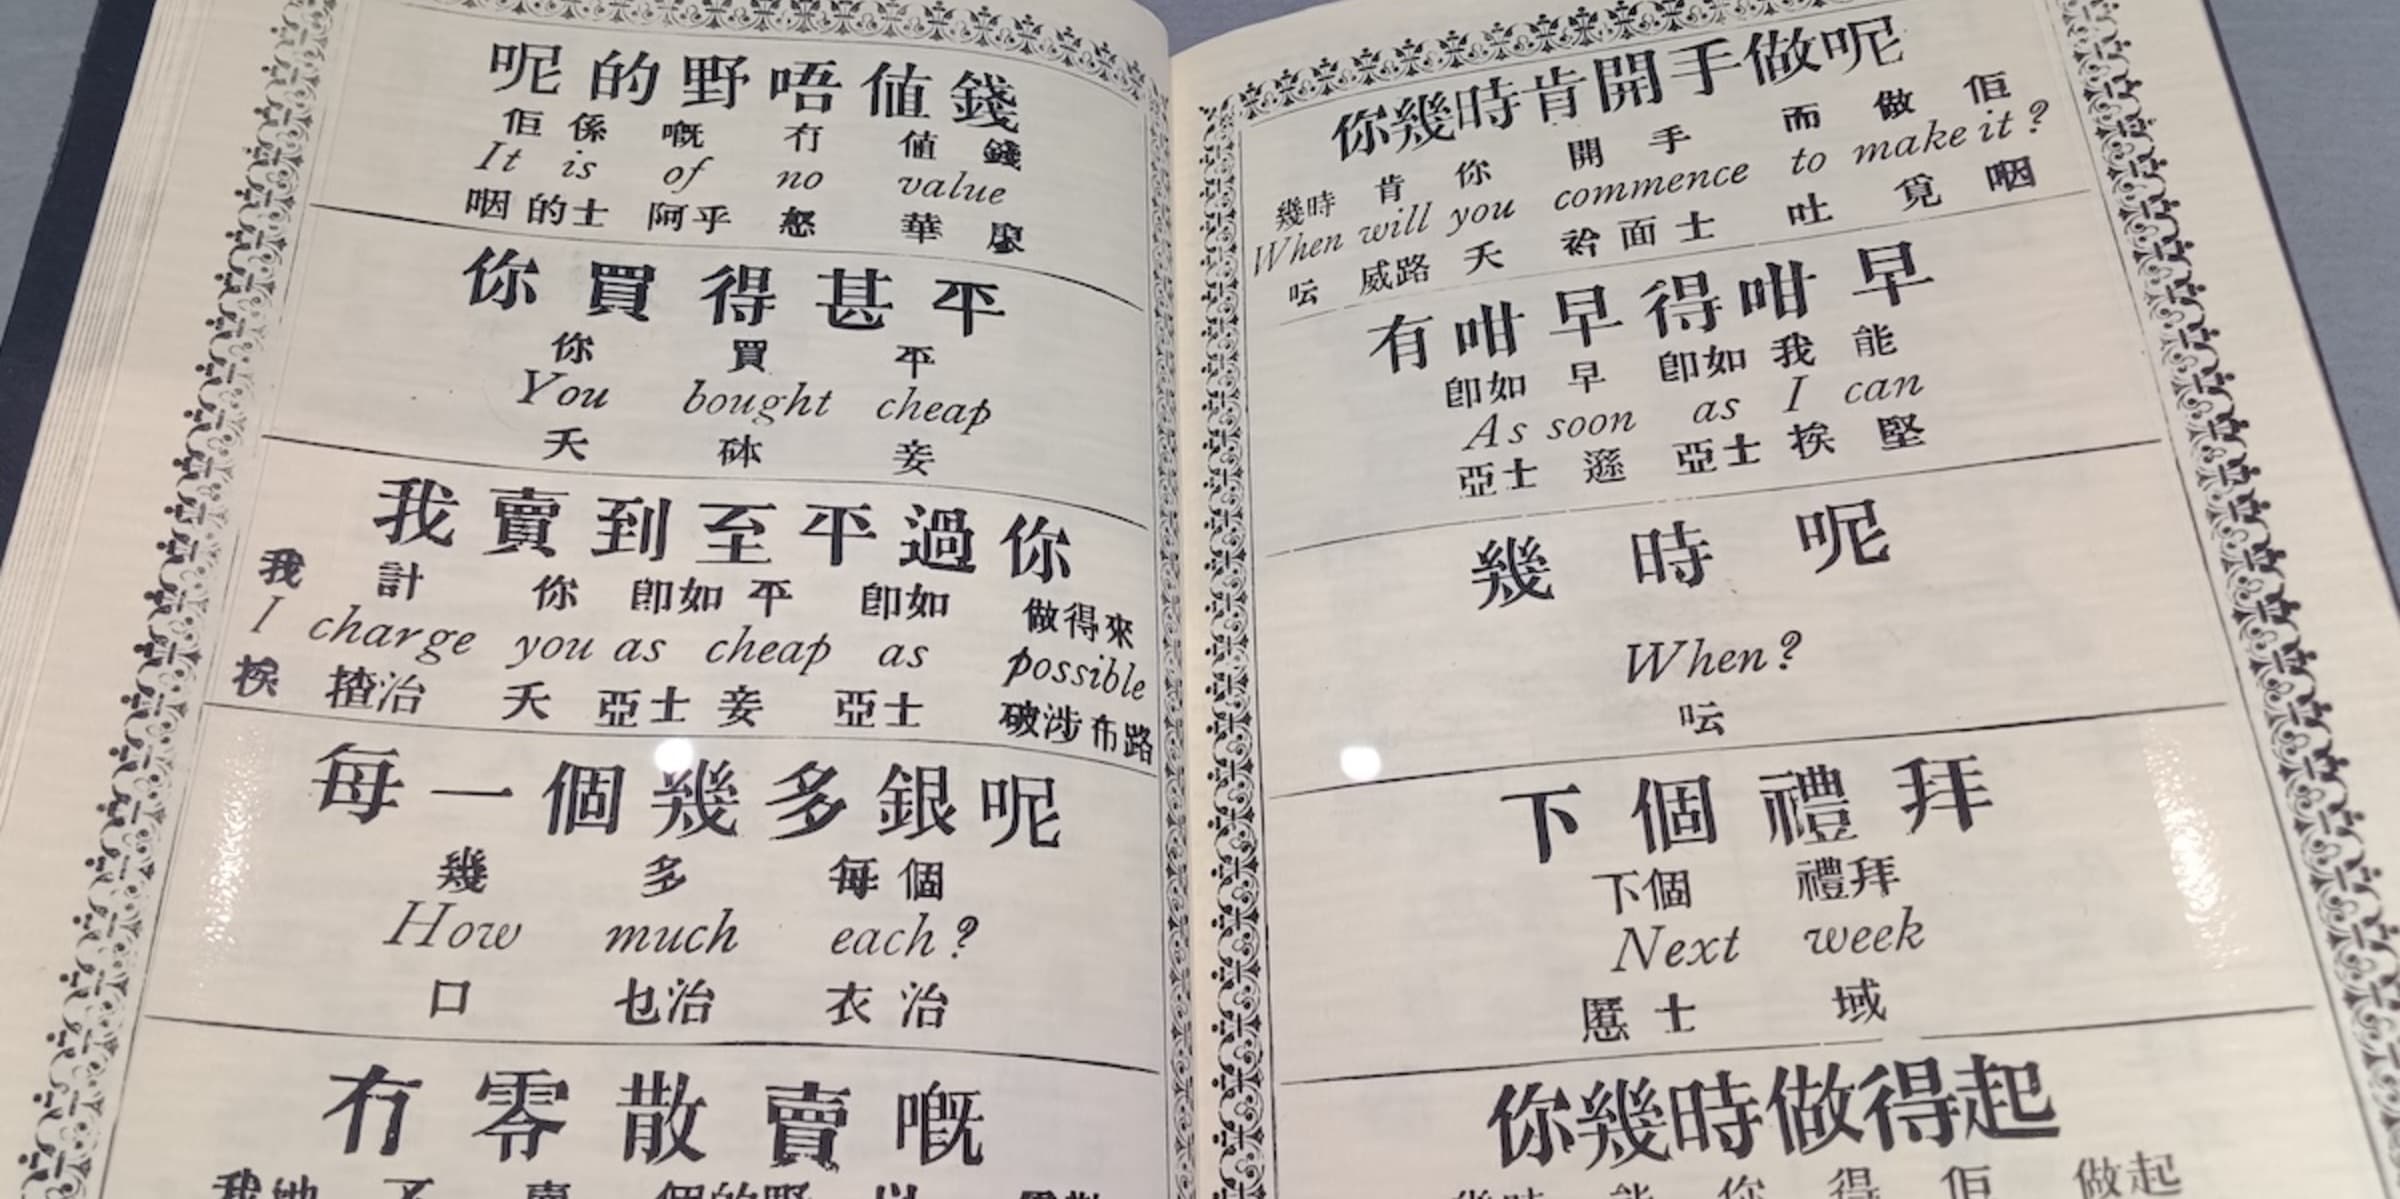 呢的野唔值錢
佢係嘅冇值錢
It is of no value
咽的士阿乎怒華廖
你買得甚平
你買平
You bought cheap
夭砵妾
我賣到至平過你
我計你即如平即如做得來
I charge you as cheap as possible
挨揸治夭亞士妾亞士破涉布路
每一個幾多銀呢
幾多每個
How much each?
口乜治衣治
冇零散賣嘅
你幾時肯開手做呢
幾時肯你開手而做佢
When will you commence to make it?
呍威路夭衿面士吐覓咽
有咁早得咁早
即如早即如我能
As soon as I can
亞士遜亞士挨堅
幾時呢
When?
呍
下個禮拜
下個禮拜
Next week
士域
你幾時做得起